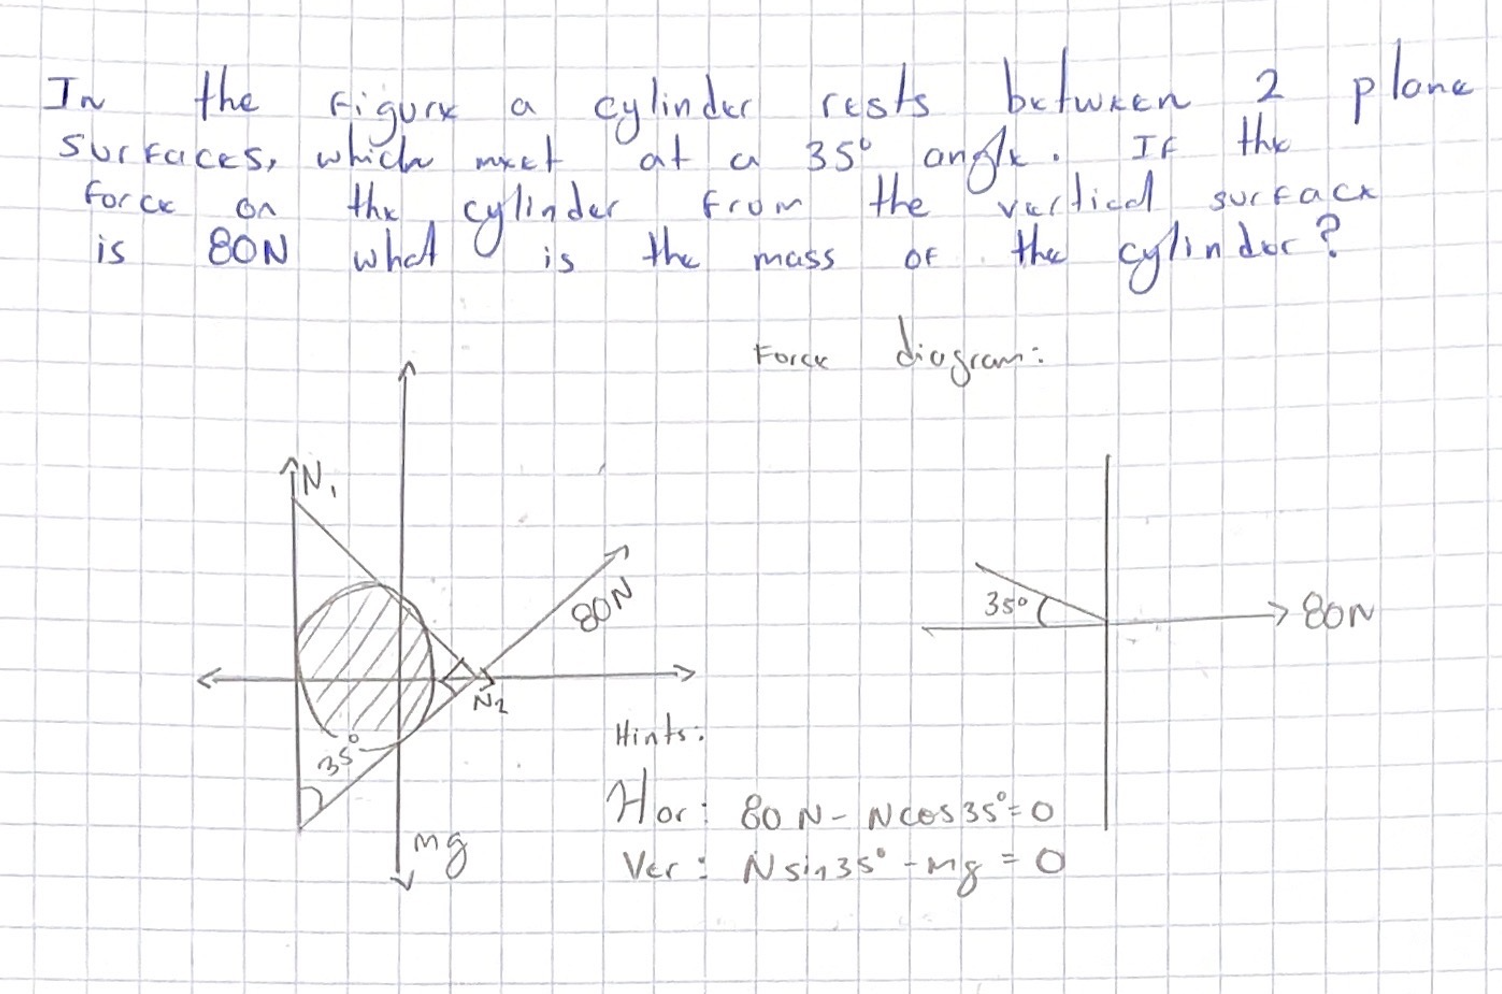 In the figure a cylinder rests between 2 plane
surfaces, which meet at a 35° angle. If the
force on the cylinder from the vertical surface
is 80N what is the mass of the cylinder?
Force diagram:
N₁
80N
35°
80N
N₂
35°
mg
Hints:
Hor: 80N - Ncos35° = 0
Ver: Nsin35° - mg = 0